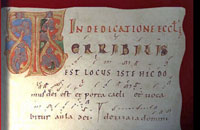 IN DEDICATIONE ECCL
TERRIBILIS
EST LOCUS ISTE HIC DO
mus dei est et porta caeli et voca
bitur aula dei